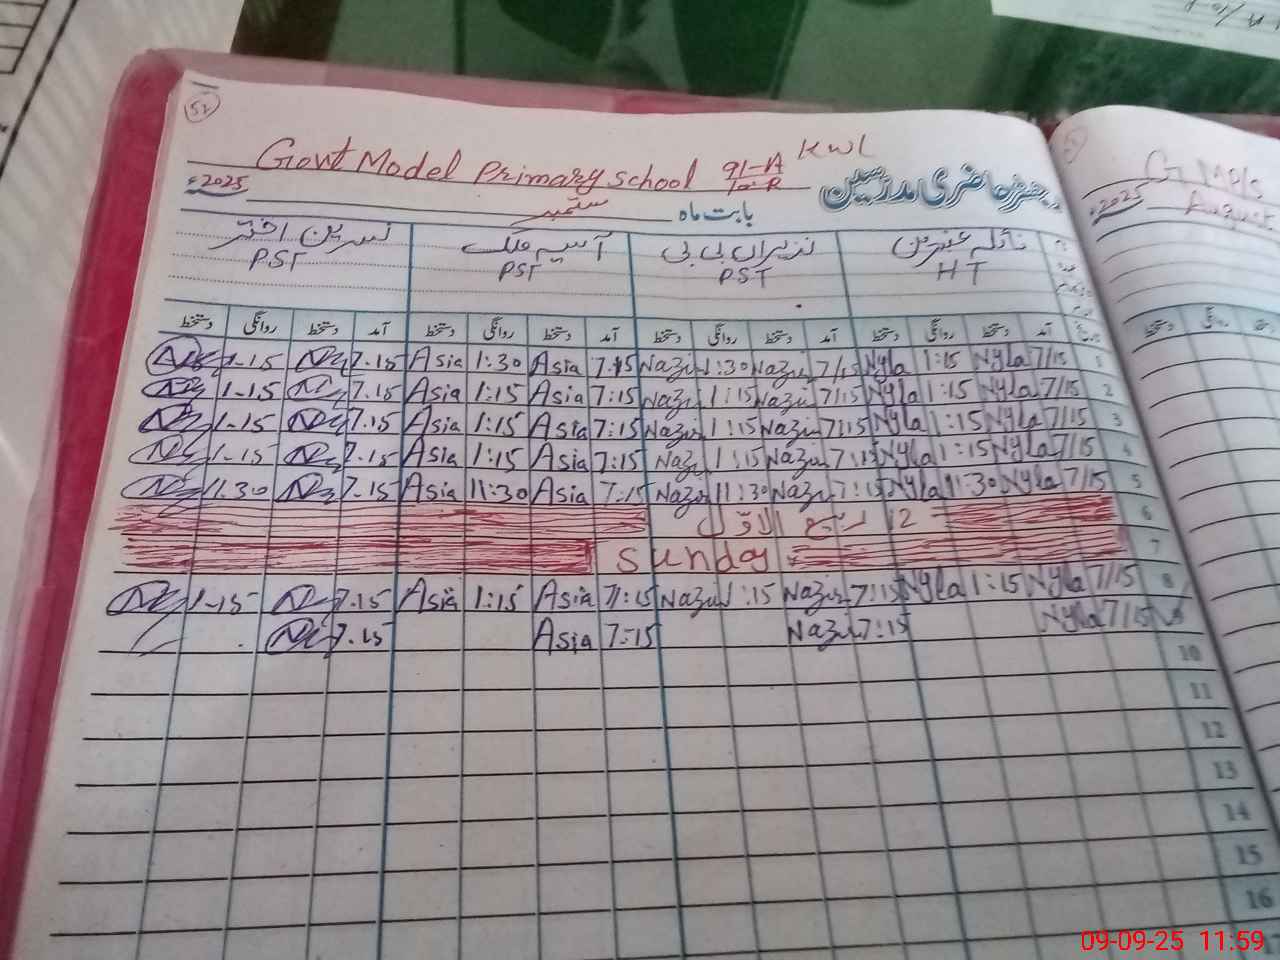 52
Govt Model Primary School 91-A/10-R KWL
رجسٹر حاضری مدرسین
بابت ماہ ستمبر 2025ء
نائلہ عنبرین نذیراں بی بی آسیہ ملک نسرین اختر
HT PST PST PST
آمد دستخط روانگی دستخط آمد دستخط روانگی دستخط آمد دستخط روانگی دستخط آمد دستخط روانگی دستخط
1-15 7.15 Asia 1:30 Asia 7:15 Nazir 1:30 Nazir 7/15 Nyla 1:15 Nyla 7/15 1
1-15 7.15 Asia 1:15 Asia 7:15 Nazir 1:15 Nazir 7/15 Nyla 1:15 Nyla 7/15 2
1-15 7.15 Asia 1:15 Asia 7:15 Nazir 1:15 Nazir 7:15 Nyla 1:15 Nyla 7/15 3
1-15 7.15 Asia 1:15 Asia 7:15 Nazir 1:15 Nazir 7:15 Nyla 1:15 Nyla 7/15 4
11.30 7.15 Asia 11:30 Asia 7:15 Nazir 11:30 Nazir 7:15 Nyla 11:30 Nyla 7/15 5
12 ربیع الاوّل 6
Sunday 7
1-15 7.15 Asia 1:15 Asia 7:15 Nazir 1:15 Nazir 7:15 Nyla 1:15 Nyla 7/15 8
7.15 Asia 7:15 Nazir 7:15 Nyla 7/15
10
11
12
13
14
15
16
GMP/S
2025ء August
دستخط روانگی
09-09-25 11:59